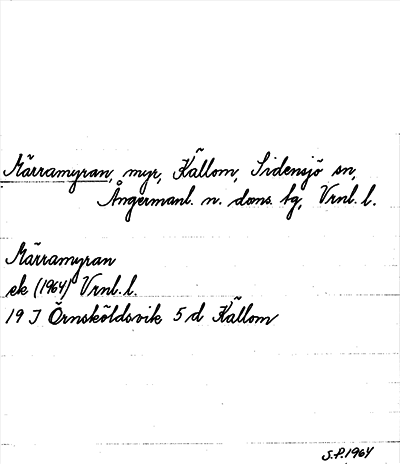 Märramyran, myr, Källom, Sidensjö sn,
Ångermanl. n. doms. tg, Vrnl. l.
Märramyran
ek (1964) Vrnl. l.
19 J Örnsköldsvik 5 d Källom
S.P. 1964